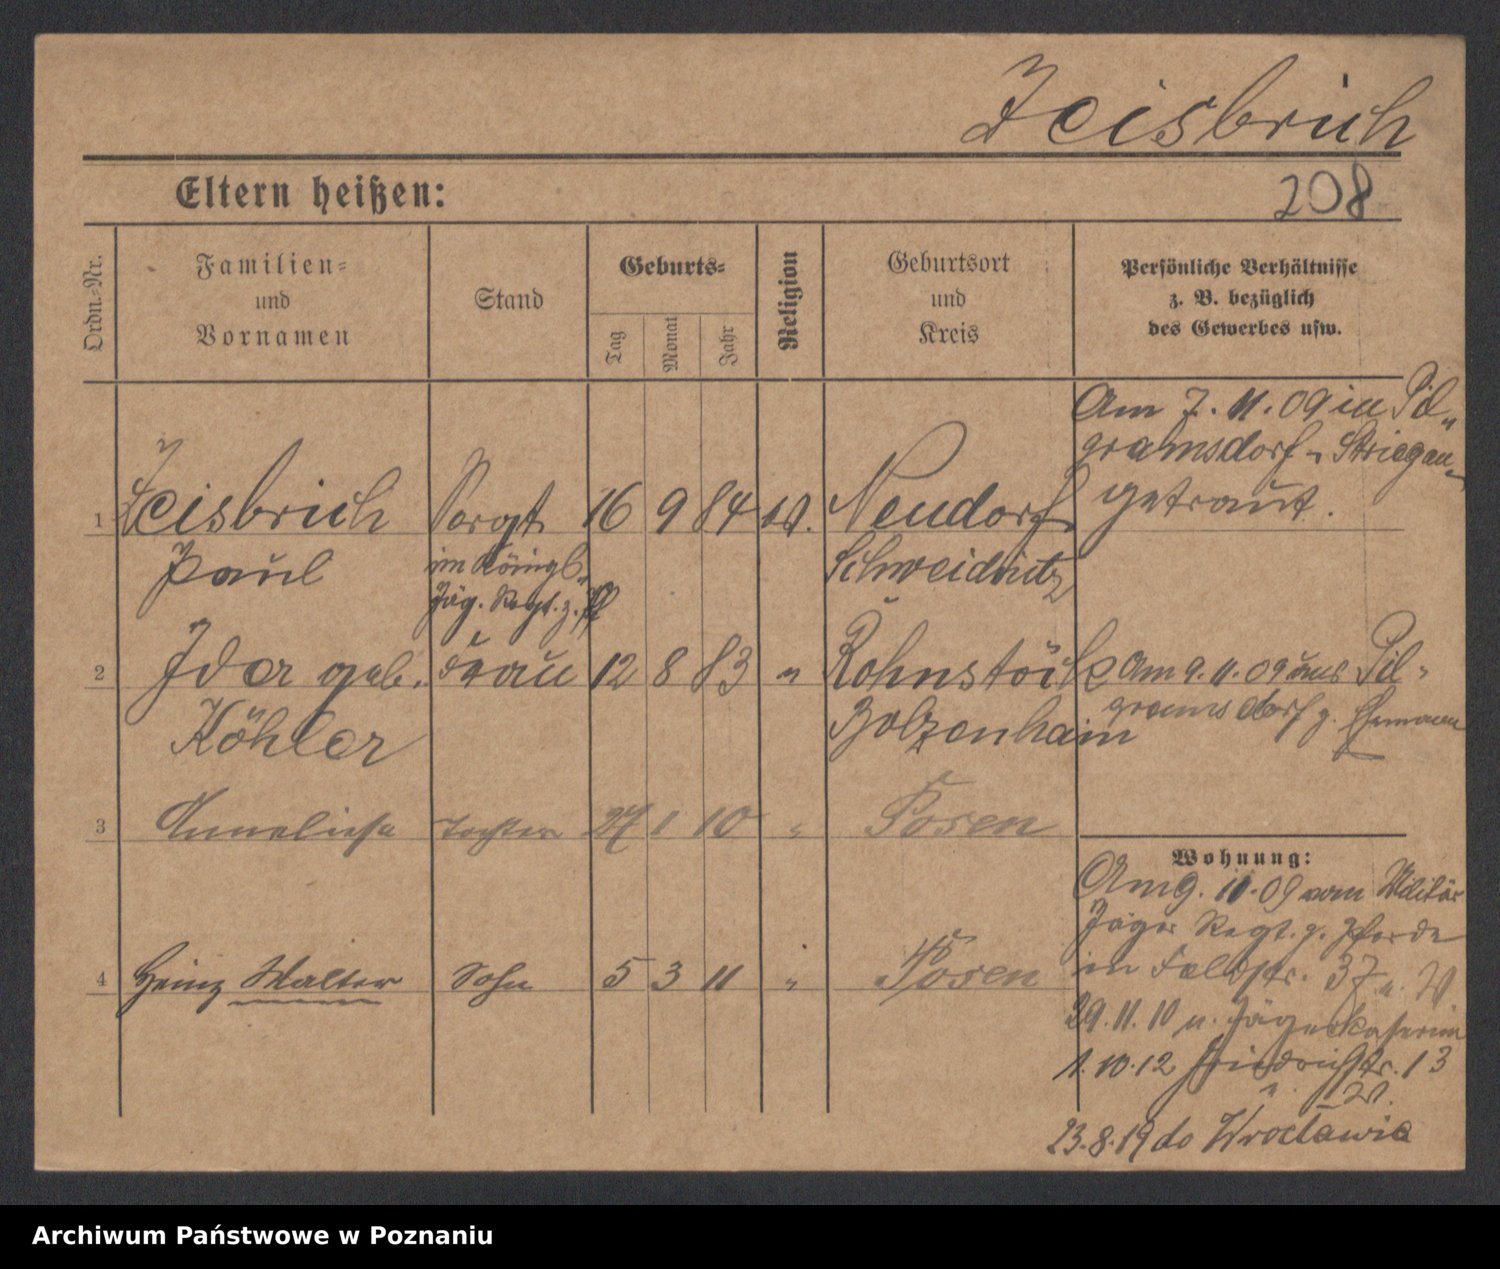 Zeisbrich
Eltern heißen:
208
Ordn.-Nr.
Familien-
und
Vornamen
Stand
Geburts-
Tag
Monat
Jahr
Religion
Geburtsort
und
Kreis
Persönliche Verhältnisse
z. B. bezüglich
des Gewerbes usw.
1 Zeisbrich Sergt. 16 9 84 Neudorf
Paul im Königl. Schweidnitz
Jäg. Regt. z. Pf
Am 7.11.09 in Pil-
gramsdorf - Striegau
getraut.
2 Ida geb. Frau 12 8 83 " Rohnstock
Köhler Bolzenhain
Am 9.11.09 aus Pil-
gramsdorf z. Ehemann
3 Anneliese Tochter 27 1 10 " Posen
4 Heinz Walter Sohn 5 3 11 " Posen
Wohnung:
Am 9.11.09 vom Militär
Jäger Regt. z. Pferde
in Feldstr. 37
29.11.10 n. Jägerkaserne
1.10.12 Friedrichstr. 13
23.8.19 do Wrocławia
Archiwum Państwowe w Poznaniu